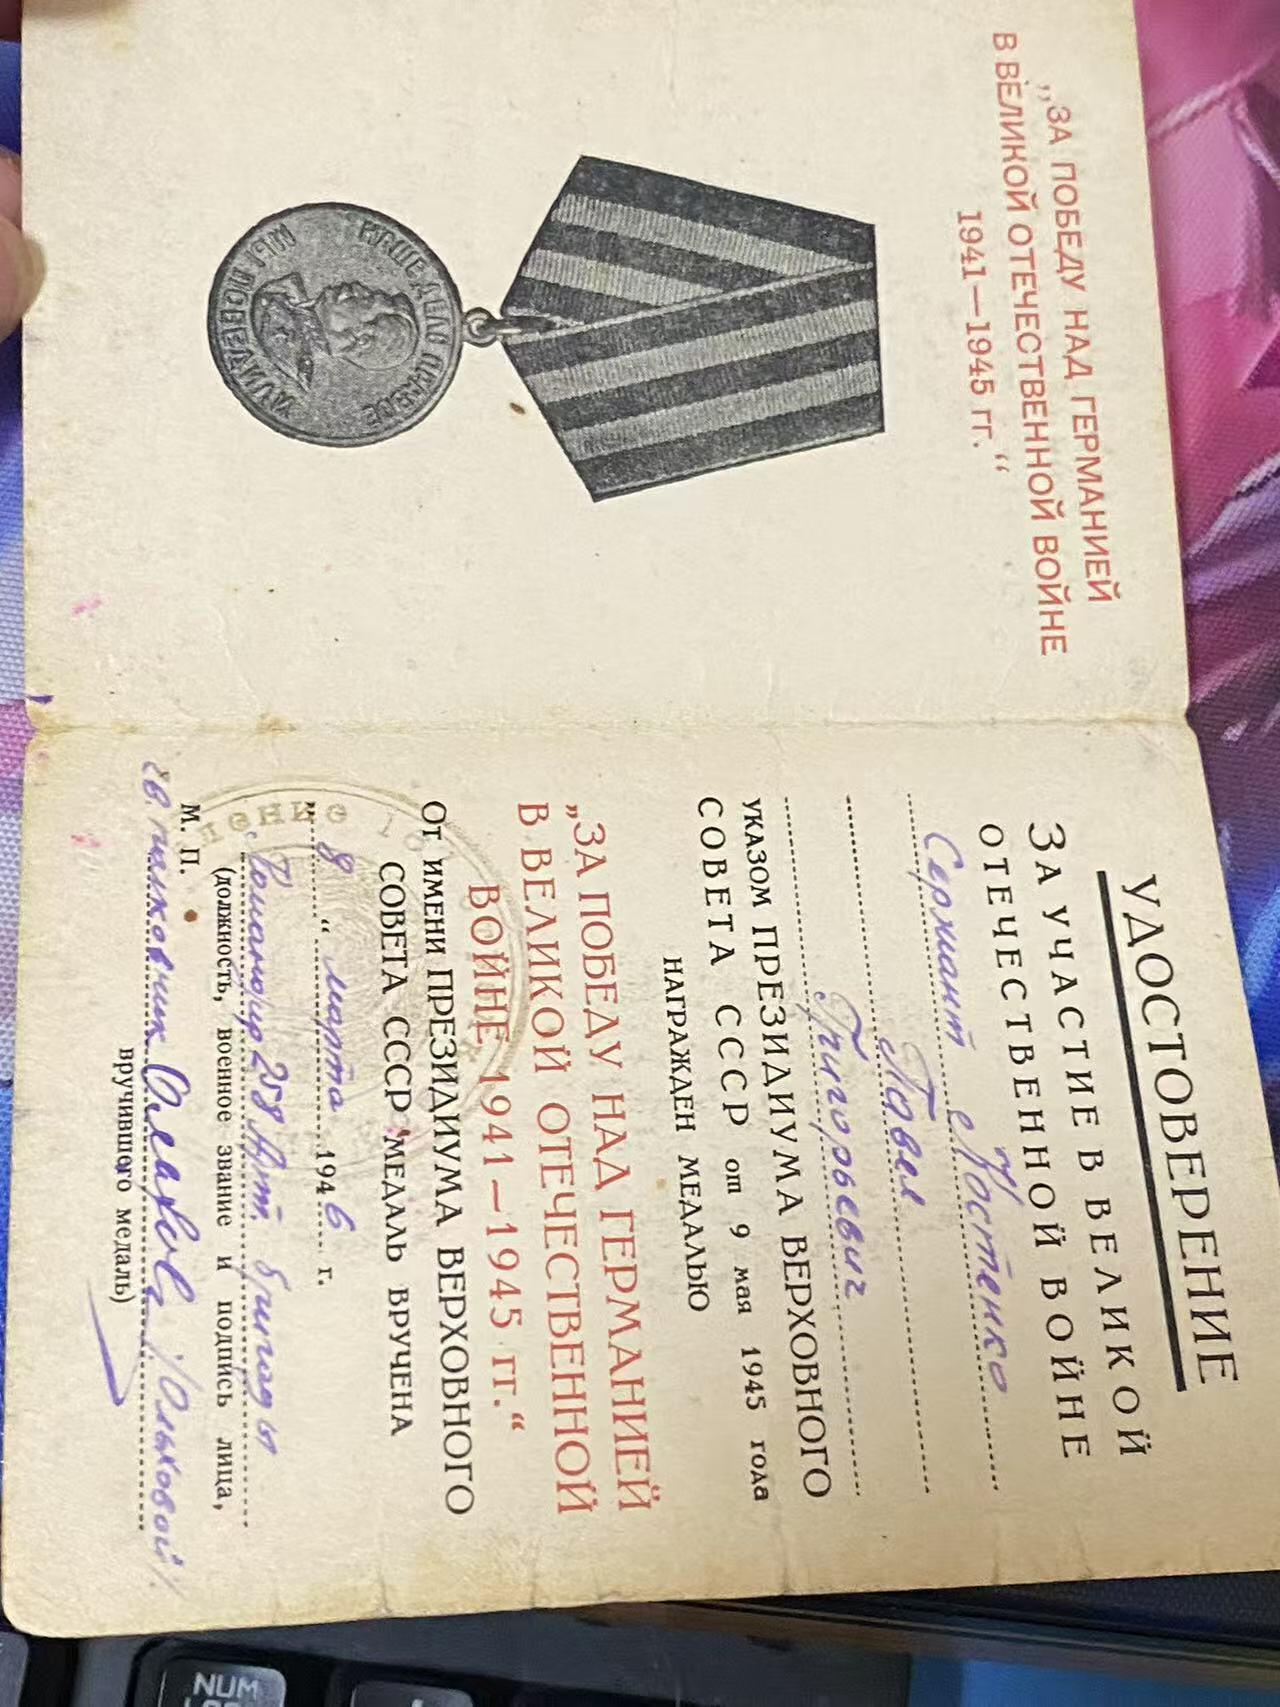 „ЗА ПОБЕДУ НАД ГЕРМАНИЕЙ
В ВЕЛИКОЙ ОТЕЧЕСТВЕННОЙ ВОЙНЕ
1941—1945 гг.“
НАШЕ ДЕЛО ПРАВОЕ
МЫ ПОБЕДИЛИ
УДОСТОВЕРЕНИЕ
ЗА УЧАСТИЕ В ВЕЛИКОЙ
ОТЕЧЕСТВЕННОЙ ВОЙНЕ
Сержант Костенко
Павел
Григорьевич
УКАЗОМ ПРЕЗИДИУМА ВЕРХОВНОГО
СОВЕТА СССР от 9 мая 1945 года
НАГРАЖДЕН МЕДАЛЬЮ
„ЗА ПОБЕДУ НАД ГЕРМАНИЕЙ
В ВЕЛИКОЙ ОТЕЧЕСТВЕННОЙ
ВОЙНЕ 1941—1945 гг.“
От имени ПРЕЗИДИУМА ВЕРХОВНОГО
СОВЕТА СССР МЕДАЛЬ ВРУЧЕНА
„8“ марта 1946 г.
Командир 258 Арт. бригады
(должность, военное звание и подпись лица,
М. П.
гв. полковник
вручившего медаль)
NUM